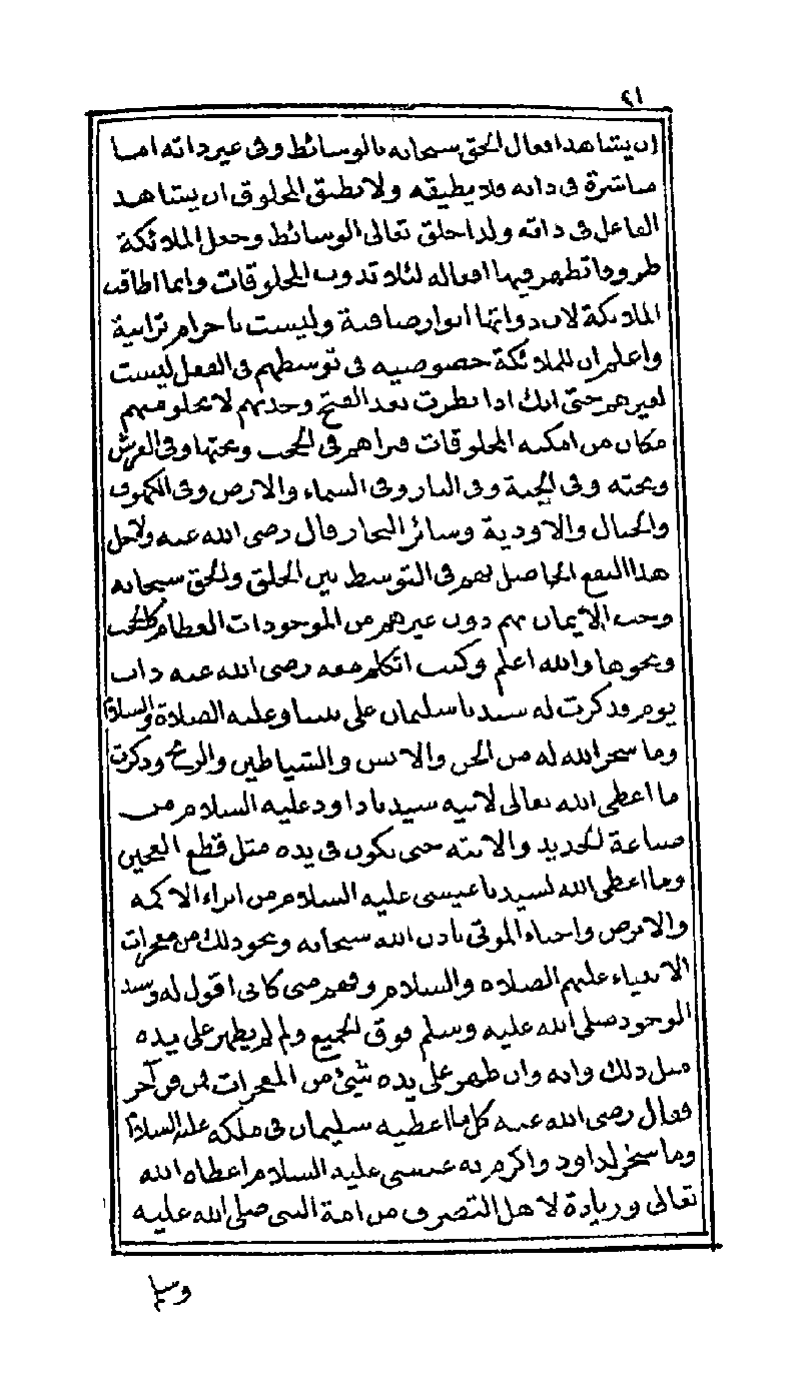 ٤١
ان يشاهد افعال الحق سبحانه بالوسائط وفى غير ذاته اما
مباشرة فى ذاته فلا يطيقه ولا يطيق المخلوق ان يشاهد
الفاعل فى ذاته ولذا خلق تعالى الوسائط وجعل الملائكة
ظروفا تظهر فيها افعاله لئلا تذوب المخلوقات وانما اطاقت
الملائكة لان ذواتها انوار صافية وليست باجرام ترابية
واعلم ان للملائكة خصوصيه فى توسطهم فى الفعل ليست
لغيرهم حتى انك اذا نظرت بعد الفتح وجدتهم لا يخلو منهم
مكان من امكنه المخلوقات فتراهم فى الحجب وتحتها وفى العرش
وتحته وفى الجنة وفى النار وفى السماء والارض وفى الكهوف
والجبال والاودية وسائر البحار قال رضى الله عنه ولاجل
هذا النفع الحاصل بهم فى التوسط بين الخلق والحق سبحانه
وجب الايمان بهم دون غيرهم من الموجودات العظام كالحجب
ونحوها والله اعلم وكنت اتكلم معه رضى الله عنه ذات
يوم فذكرت له سيدنا سليمان على نبينا وعليه الصلاة والسلام
وما سخر الله له من الجن والانس والشياطين والريح وذكرت
ما اعطى الله تعالى لابيه سيدنا داود عليه السلام من
صناعة الحديد والانته حتى يكون فى يده مثل قطع العجين
وما اعطى الله لسيدنا عيسى عليه السلام من ابراء الاكمه
والابرص واحياء الموتى باذن الله سبحانه ونحو ذلك من معجزات
الانبياء عليهم الصلاه والسلام وفهم منى كانى اقول له وسيد
الوجود صلى الله عليه وسلم فوق الجميع ولم لم يظهر على يده
مثل ذلك وانه وان ظهر على يده شيئ من المعجزات فمن فن آخر
فقال رضى الله عنه كل ما اعطيه سليمان فى ملكه عليه السلام
وما سخر لداود واكرم به عيسى عليه السلام اعطاه الله
تعالى وزيادة لاهل التصرف من امة النبى صلى الله عليه
وسلم